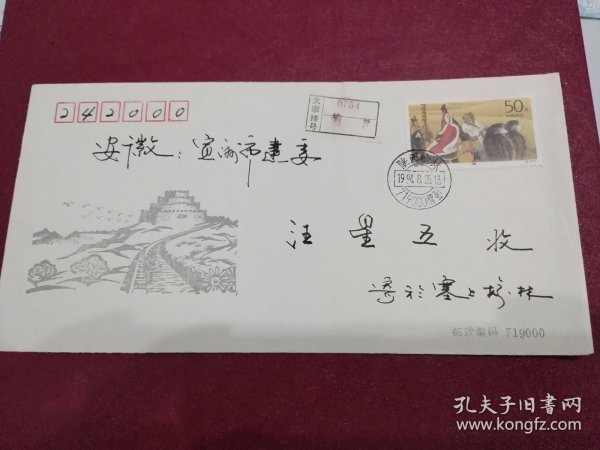 242000
大宗挂号
0754
50分
安徽：宣州市建委
陕西榆林
1994.8.25.16
汪星五 收
寄于塞上榆林
邮政编码 719000
孔夫子旧书网
www.kongfz.com